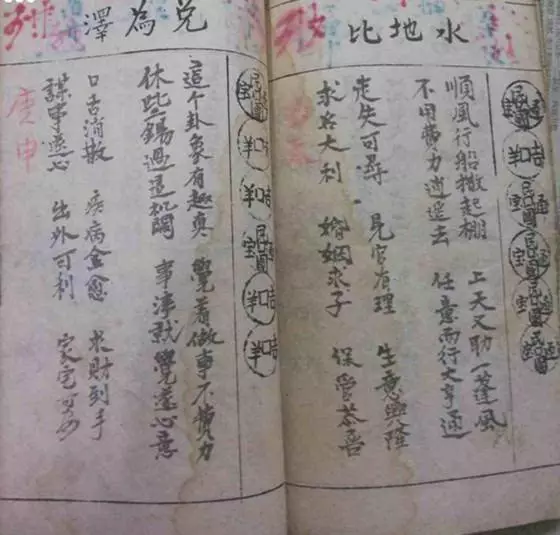 水地比
順風行船撒起棚 上天又助一蓬風
不用費力逍遥去 任意而行大亨通
走失可尋 見官有理 生意興隆
求名大利 婚姻求子 保管恭喜
兌為澤
這个卦象有趣真 覺着做事不費力
休些錯過這机關 事 就覺遂心意
口舌消散 疾病全愈 求財到手
謀事遂心 出外可利 家宅
庚申